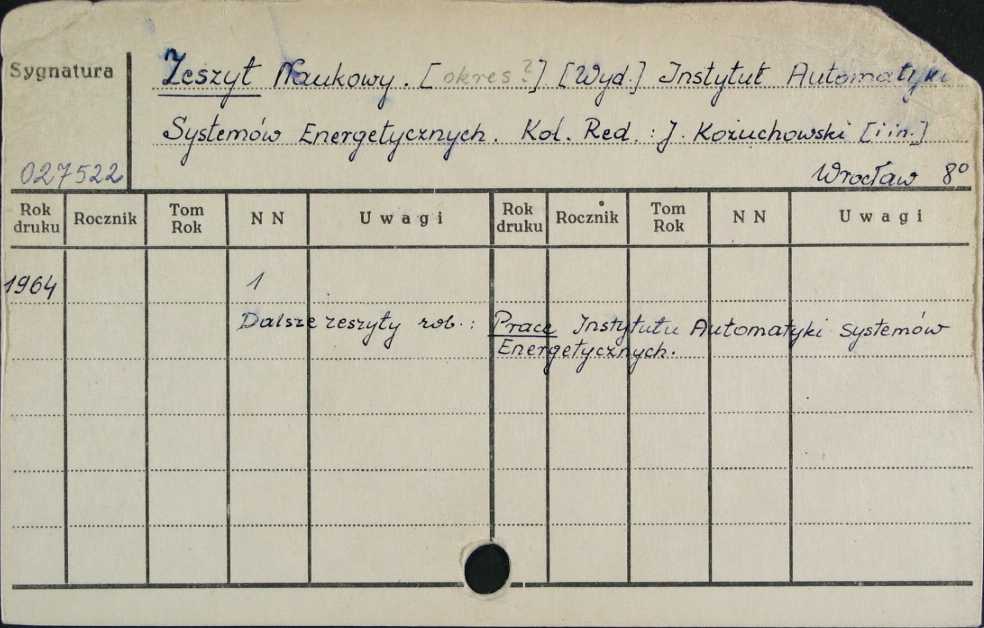 Sygnatura
Zeszyt Naukowy. [okres?] [Wyd.] Instytut Automatyki
Systemów Energetycznych. Kol. Red.: J. Kożuchowski [i in.]
027522
Wrocław 8°
Rok druku Rocznik Tom Rok NN Uwagi Rok druku Rocznik Tom Rok NN Uwagi
1964 1
Dalsze zeszyty zob.: Prace Instytutu Automatyki Systemów
Energetycznych.